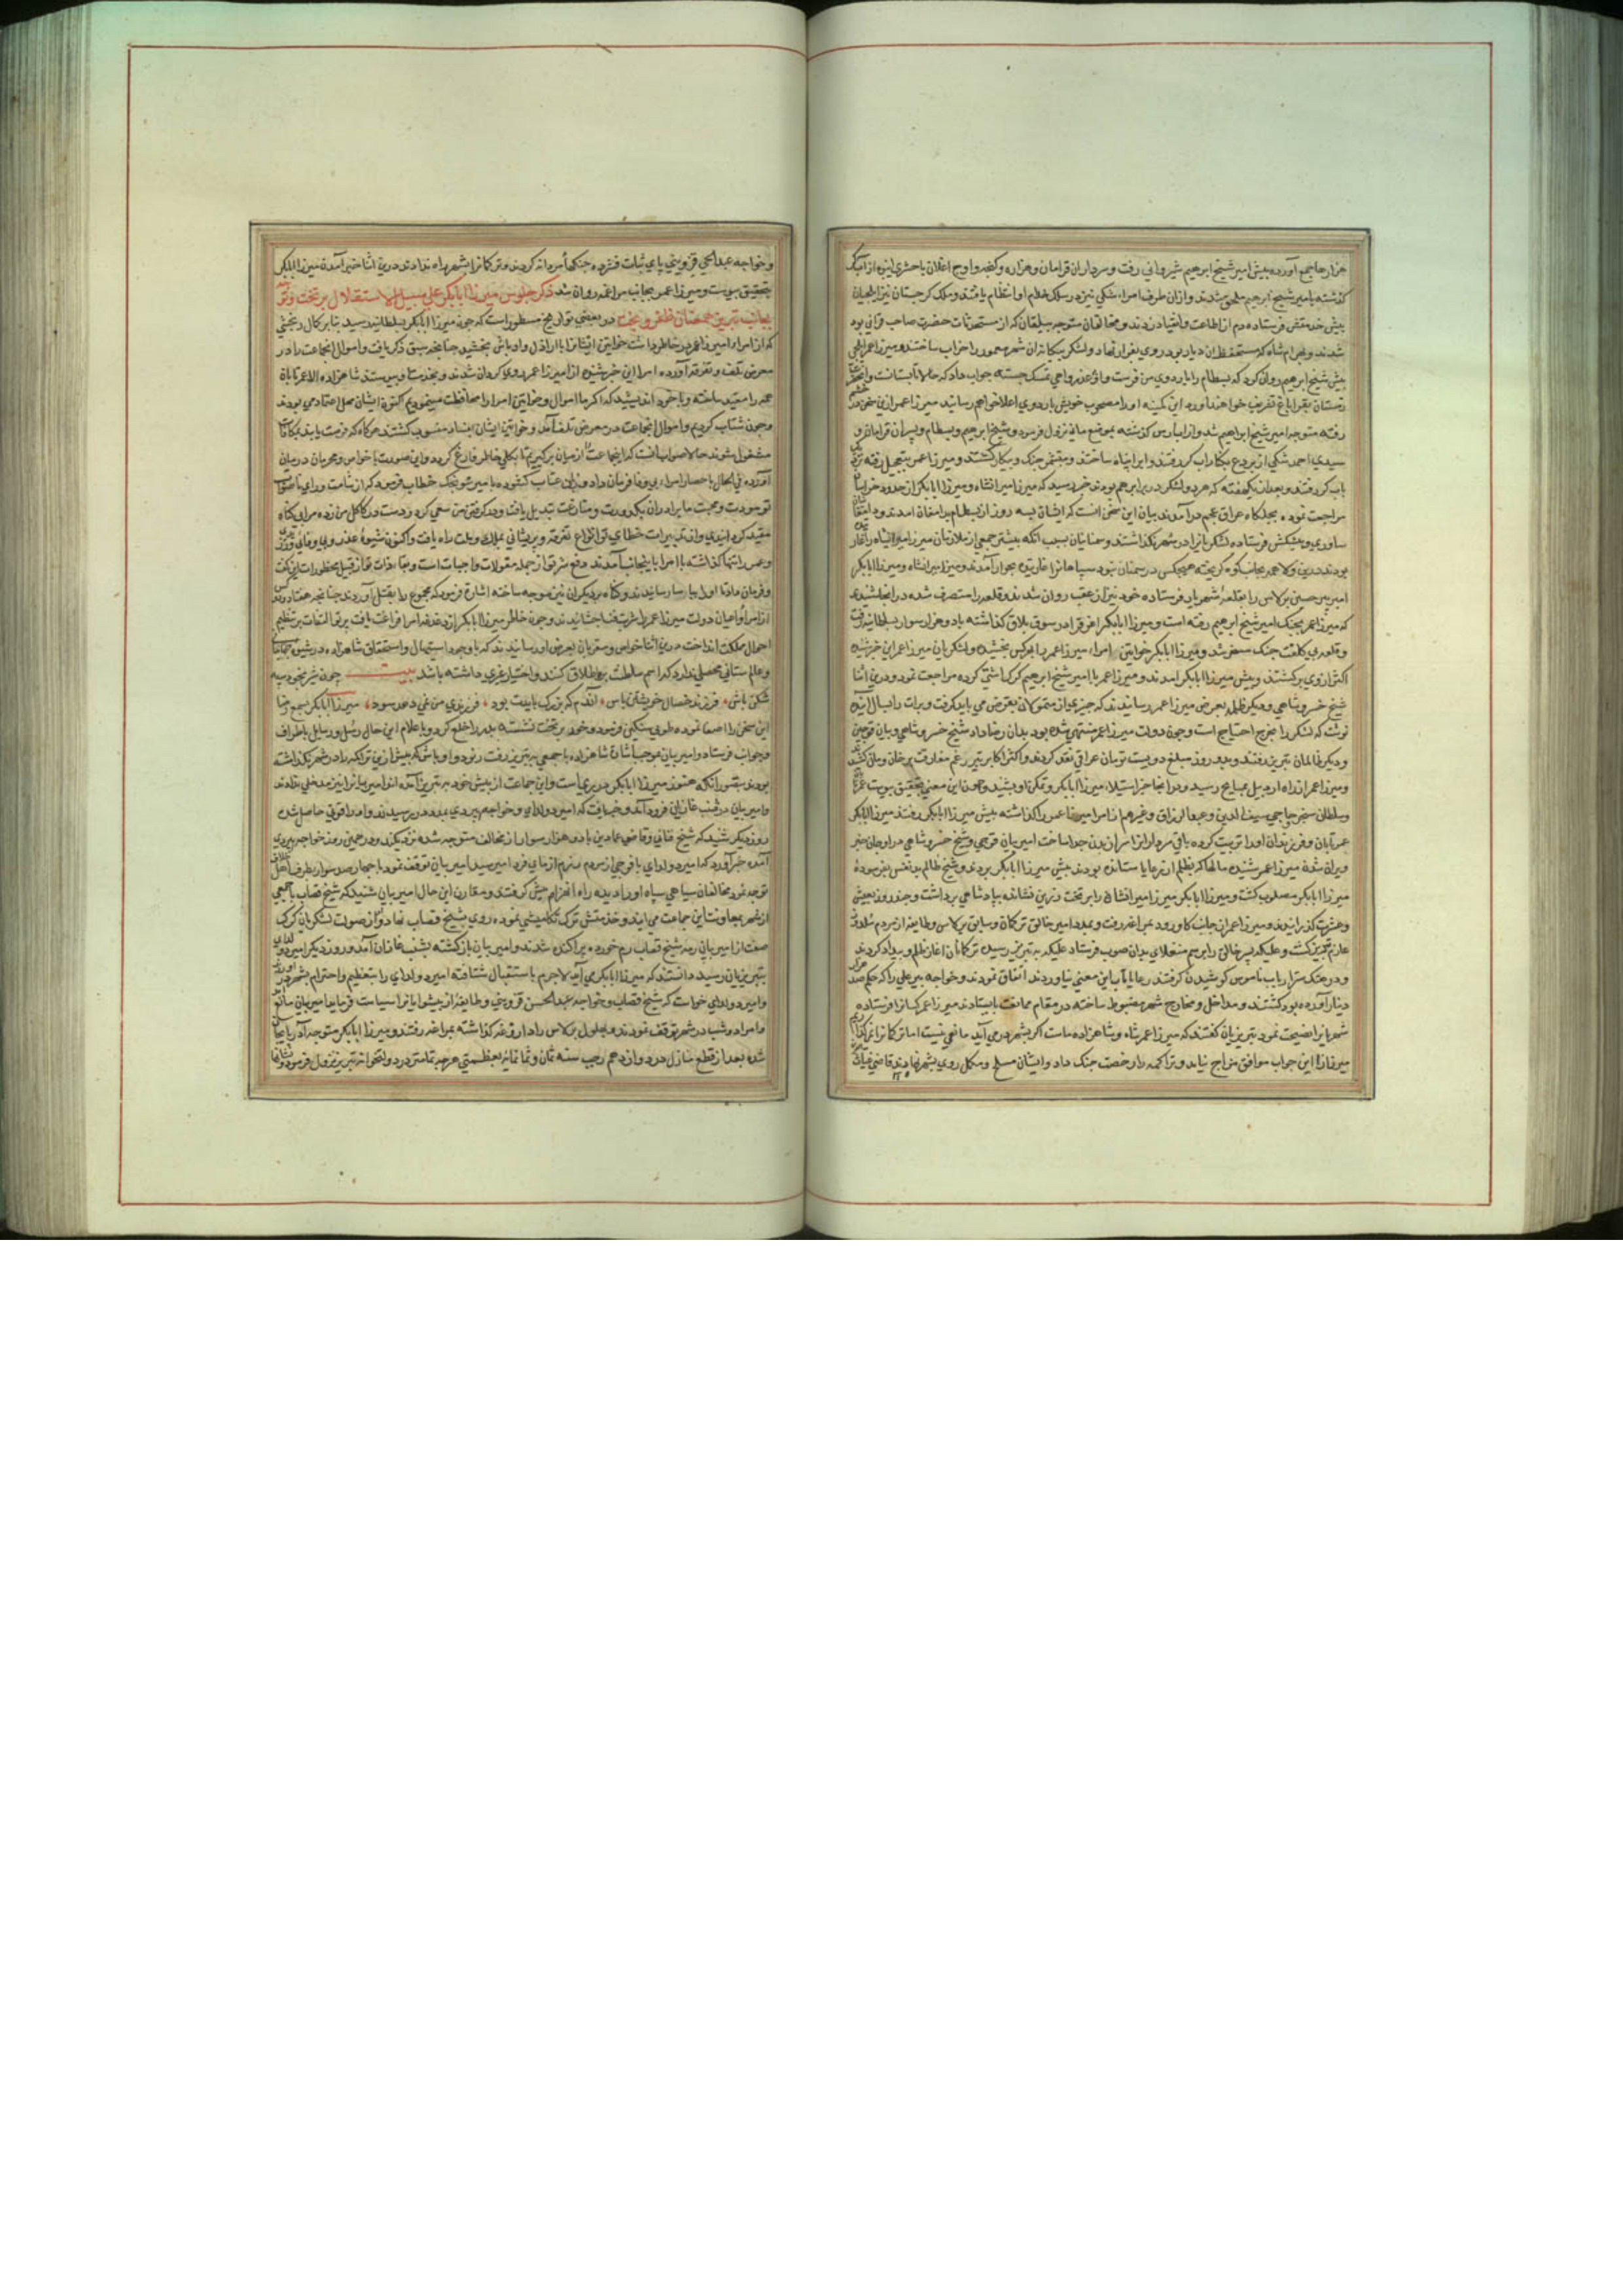 پیش امیر شیخ ابرهیم شیروانی رفت و سرداران قرامان و هزاره و کنجه و اوج اغلان با حشری انبوه از آب
کذشته بامیر شیخ ابرهیم ملحق شدند و از ان طرف امراء شکی نیز در سلک خدام او انتظام یافتند و ملک کرجستان نیز ایلچیان
پیش خدمتش فرستاده دم از اطاعت و انقیاد زدند و مخالفان متوجه بیلقان که از مستحدثات حضرت صاحب قرانی بود
شدند و بهرام شاه که مستحفظ ان دیار بود روی بفرار نهاد و لشکر بیکانه ان شهر معمور را خراب ساختند و میرزا عمر ایلچی
پیش شیخ ابرهیم روان کرد که بسطام را باردوی من فرست واو عذر واهی تمسک جسته جواب داد که حالا تابستانست
زمستان بقراباغ تشریف خواهند اورد این کمینه او را مصحوب خویش باردوی اعلا خواهم رسانید میرزا عمر ازین سخن
رفته متوجه امیر شیخ ابراهیم شد و از اب ارس کذشته بموضع نزول فرمود و شیخ ابرهیم و بسطام و پسران قرامان و
سیدی احمد شکی از بردع بکنار اب کر رفتند و ابرا پناه ساختند و منتظر جنک و پیکار کشتند و میرزا عمر بتعجیل رفته
باب کر رفتند و بعد از یکهفته که هر دو لشکر در برابر هم بودند خبر رسید که میرزا میرانشاه و میرزا ابابکر از حدود خراسان
مراجعت نموده بجلکاه عراق عجم درآمدند بیان این سخن انست که ایشان بسه روز از بسطام بدامغان امدند و
ساوری و پیشکش فرستاده لشکریانرا در شهر نکذاشتند و سمنانیان بسبب انکه پیشتر جمعی از ملازمان میرزا میرانشاه را
بودند درین ولا همه بجانب کوه کریخته هیچکس در سمنان نبود سپاه آنرا غارتیده بخوار آمدند و میرزا میرانشاه و میرزا ابابکر
امیر حسین برلاس را بقلعه شهریار فرستاده خود نیز از عقب روان شدند و قلعه را متصرف شده در انجا شنیدند
که میرزا عمر بجنک امیر شیخ ابرهیم رفته است و میرزا ابابکر اغرق را در سوق بلاق کذاشته با دو هزار سوار بسلطانیه رفت
و قلعه بی کلفت جنک مسخر شد و میرزا ابابکر خواتین امراء میرزا عمر را بهر کس بخشید و لشکریان میرزا عمر این خبر شنیده
اکثر از وی برکشتند و پیش میرزا ابابکر امدند و میرزا عمر با امیر شیخ ابرهیم کرک اشتی کرده مراجعت نمود و درین اثنا
شیخ خسرو شاهی و دیکر ظلمه بعرض میرزا عمر رسانیدند که چیزی از متمولان بقرض می باید کرفت و برات را بسال اینده
نوشت که لشکر را بخرج احتیاج است و چون دولت میرزا عمر منتهی شده بود بدان رضا داد شیخ خسرو شاهی و بیان قوچین
و دیکر ظالمان بتبریز رفتند و بدو روز مبلغ دویست تومان عراقی نقد کردند و اکثر اکابر تبریز رغم مفارقت بر خان و مان
و میرزا عمر از راه اردبیل بمراغه رسید و در انجا خبر استیلاء میرزا ابابکر و تمکن او بشنید و چون این معنی بتحقیق پیوست
و سلطان سنجر حاجی سیف الدین و عبد الرزاق و غیرهم از امرا میرزا عمر را کذاشته پیش میرزا ابابکر رفتند میرزا ابابکر
عمر تابان و فرزندان او را تربیت کرده باقی سرداران را سر از بدن جدا ساخت امیر بیان قوچین و شیخ خسرو شاهی در اوجان خبر
ویران شدن میرزا عمر شنیده مالها که بظلم از رعایا ستانده بودند پیش میرزا ابابکر بردند و شیخ ظالم بد نفس بفرموده
میرزا ابابکر مصلوب کشت و میرزا ابابکر میرزا میرانشاه را بر تخت تبریز نشانده بپادشاهی برداشت و چند روز بعیش
و عشرت کذرانیدند و میرزا عمر از جانب کاورود بمراغه رفت و بمدد امیر جالق ترکمان و سایق برلاس و طایفه از مردم
عازم تبریز کشت و علیکه پسر خالق را برسم منقلای بدان صوب فرستاد علیکه به تبریز رسیده ترکمانان آغاز ظلم و بیداد کردند
و در هتک ستر ارباب ناموس کوشیدن کرفتند رعایا تاب این معنی نیاوردند اتفاق نمودند و خواجه پیر علی را که حکم صد
دینار آورده بود کشتند و مداخل و مخارج شهر مضبوط ساخته در مقام ممانعت بایستادند میرزا عمر کسانرا فرستاده
شهریانرا نصیحت نمود تبریزیان کفتند که میرزا عمر شاه و شاهزاده ماست اکر بشهر درمی آید مانعی نیست اما ترکمانرا
میرزا را این جواب موافق مزاج نیامد و تراکمه را رخصت جنک داد و ایشان مسلح و مکمل روی بشهر نهادند قاضی غیاث
و خواجه عبدالحی قزوینی پای ثبات فشرده جنکهاء مردانه کردند و ترکمانرا بشهر راه ندادند درین اثنا خبر آمدن میرزا ابابکر
بتحقیق پیوست و میرزا عمر بجانب مراغه روان شد ذکر جلوس میرزا ابابکر علی سبیل الاستقلال بر تخت و
بجانب تبریز همعنان ظفر و بخت در بعضی تواریخ مسطور است که چون میرزا ابابکر بسلطانیه رسید بنابر کمال رنجشی
که از امراء میرزا عمر در خاطر داشت خواتین ایشانرا با اراذل و اوباش بخشید چنانچه سبق ذکر یافت و اموال انجماعت را در
معرض تلف و تفرقه آورده امرا این خبر شنوده از میرزا عمر روی کردان شدند و بخدمت او پیوستند شاهزاده
همه را مقید ساخته و با خود اندیشید که اکر ما اموال و خواتین امرا را محافظت مینمودیم اکنون ایشان محل اعتماد می بودند
و چون شتاب کردیم و اموال انجماعت در معرض تلف آمد و خواتین ایشان بفساد منسوب کشتند هرکاه که فرصت یابند بمکافات
مشغول شوند حالا صواب آنست که اینجماعت را از میان برکیریم تا بکلی خاطر فارغ کردد و این صورت با خواص و محرمان در میان
آورده فی الحال باحضار امراء بی وفا فرمان داد و زبان عتاب کشوده با امیر سونجک خطاب فرمود که از شامت و رای ناصواب
تو مودت و محبت ما برادران بکدورت و منازعت تبدیل یافت و در کرفتن من سعی کرد و دست در کاکل من زده مرا بی کناه
مقید کردانیدی و از تدبیرات خطای تو انواع تفرقه و پریشانی بملک و ملت راه یافت و اکنون شیوه غدر و بی وفائی
و عمر را تنها کذاشته با امرا باینجانب آمدند دفع شر تو از جمله مقولات واجبات است و بقاء ذات تو از قبیل محظورات این بکفت
و فرمان داد تا اول او را بیاسا رسانیدند و کناه بر دیکران نیز موجه ساخته اشارت فرمود که مجموع را بقتل آوردند چنانچه هفتاد و
از امرا و اعیان دولت میرزا عمر را شربت فنا چشانیدند و چون خاطر میرزا ابابکر از دغدغه امرا فراغت یافت پرتو التفات بر تنظیم
احوال مملکت انداخت درین اثنا خواص و مقربان بعرض او رسانیدند که باوجود استیهال و استحقاق شاهزاده در شیوه
و عالم ستانی محصلی ندارد که اسم سلطنت بر اطلاق کنند و اختیار غیری داشته باشد بیت چون شیر بخود سپه
شکن باش، فرزند خصال خویشتن باش، آندم که بزرک بایدت بود، فرزندی من نمی دهد سود، میرزا ابابکر بسمع رضا
این سخن را اصغا نموده طوی سنکین فرمود و خود بر تخت نشسته پدر را خلع کرد و باعلام این حال رسل و رسایل باطراف
و جوانب فرستاد و امیر بیان بموجب اشارت شاهزاده با جمعی به تبریز رفت رنود و اوباش که پیش ازین تراکمه را در شهر نکذاشته
بودند بتصور انکه هنوز میرزا ابابکر در ری است و این جماعت از پیش خود به تبریز آمده اند امیر بیانرا نیز مدخل ندادند
و امیر بیان در شنب غازانی فرود آمد و خبر یافت که امیر دولدای و خواجه پیردی بمدد در رسیدند و او را قوتی حاصل شد
روز دیکر شنید که شیخ قانی و قاضی عمادین با دو هزار سوار از مخالف متوجه شده نزدیکند و در همین روز خواجه پیردی
آمده خبر آورد که امیر دولدای با فوجی از مردم منهزم از مای فرد امیر سید امیر بیان توقف نمود با چهار صد سوار بطرف
توجه نمود مخالفان سیاهی سپاه او را دیده راه انهزام پیش کرفتند و مقارن این حال امیر بیان شنید که شیخ قصاب با جمعی
از شهر بمعاونت این جماعت می ایند و خدمتش ترک تکامیشی نموده روی بشیخ قصاب نهاد و از صولت لشکریان کرک
صفت از امیر بیان رمه شیخ قصاب رم خورده پراکنده شدند و امیر بیان بازکشته بشنب غازان آمد و روز دیکر امیر
بتبریزیان رسید دانستند که میرزا ابابکر می آید لاجرم باستقبال شتافته امیر دولدای را بتعظیم و احترام بشهر
و امیر دولدای خواست که شیخ قصاب و خواجه عبد الحسن قزوینی و طایفه از پیشوایانرا سیاست فرماید امیر بیان مانع
و امرا دو شب در شهر توقف نمودند و بهلول برلاس را داروغه کذاشته بمراغه رفتند و میرزا ابابکر متوجه آذربایجان
شده بعد از قطع منازل در دوازدهم رجب سنه ثمان و ثمانمائه بعظمتی هرچه تمامتر در دولتخوانه تبریز نزول فرمود